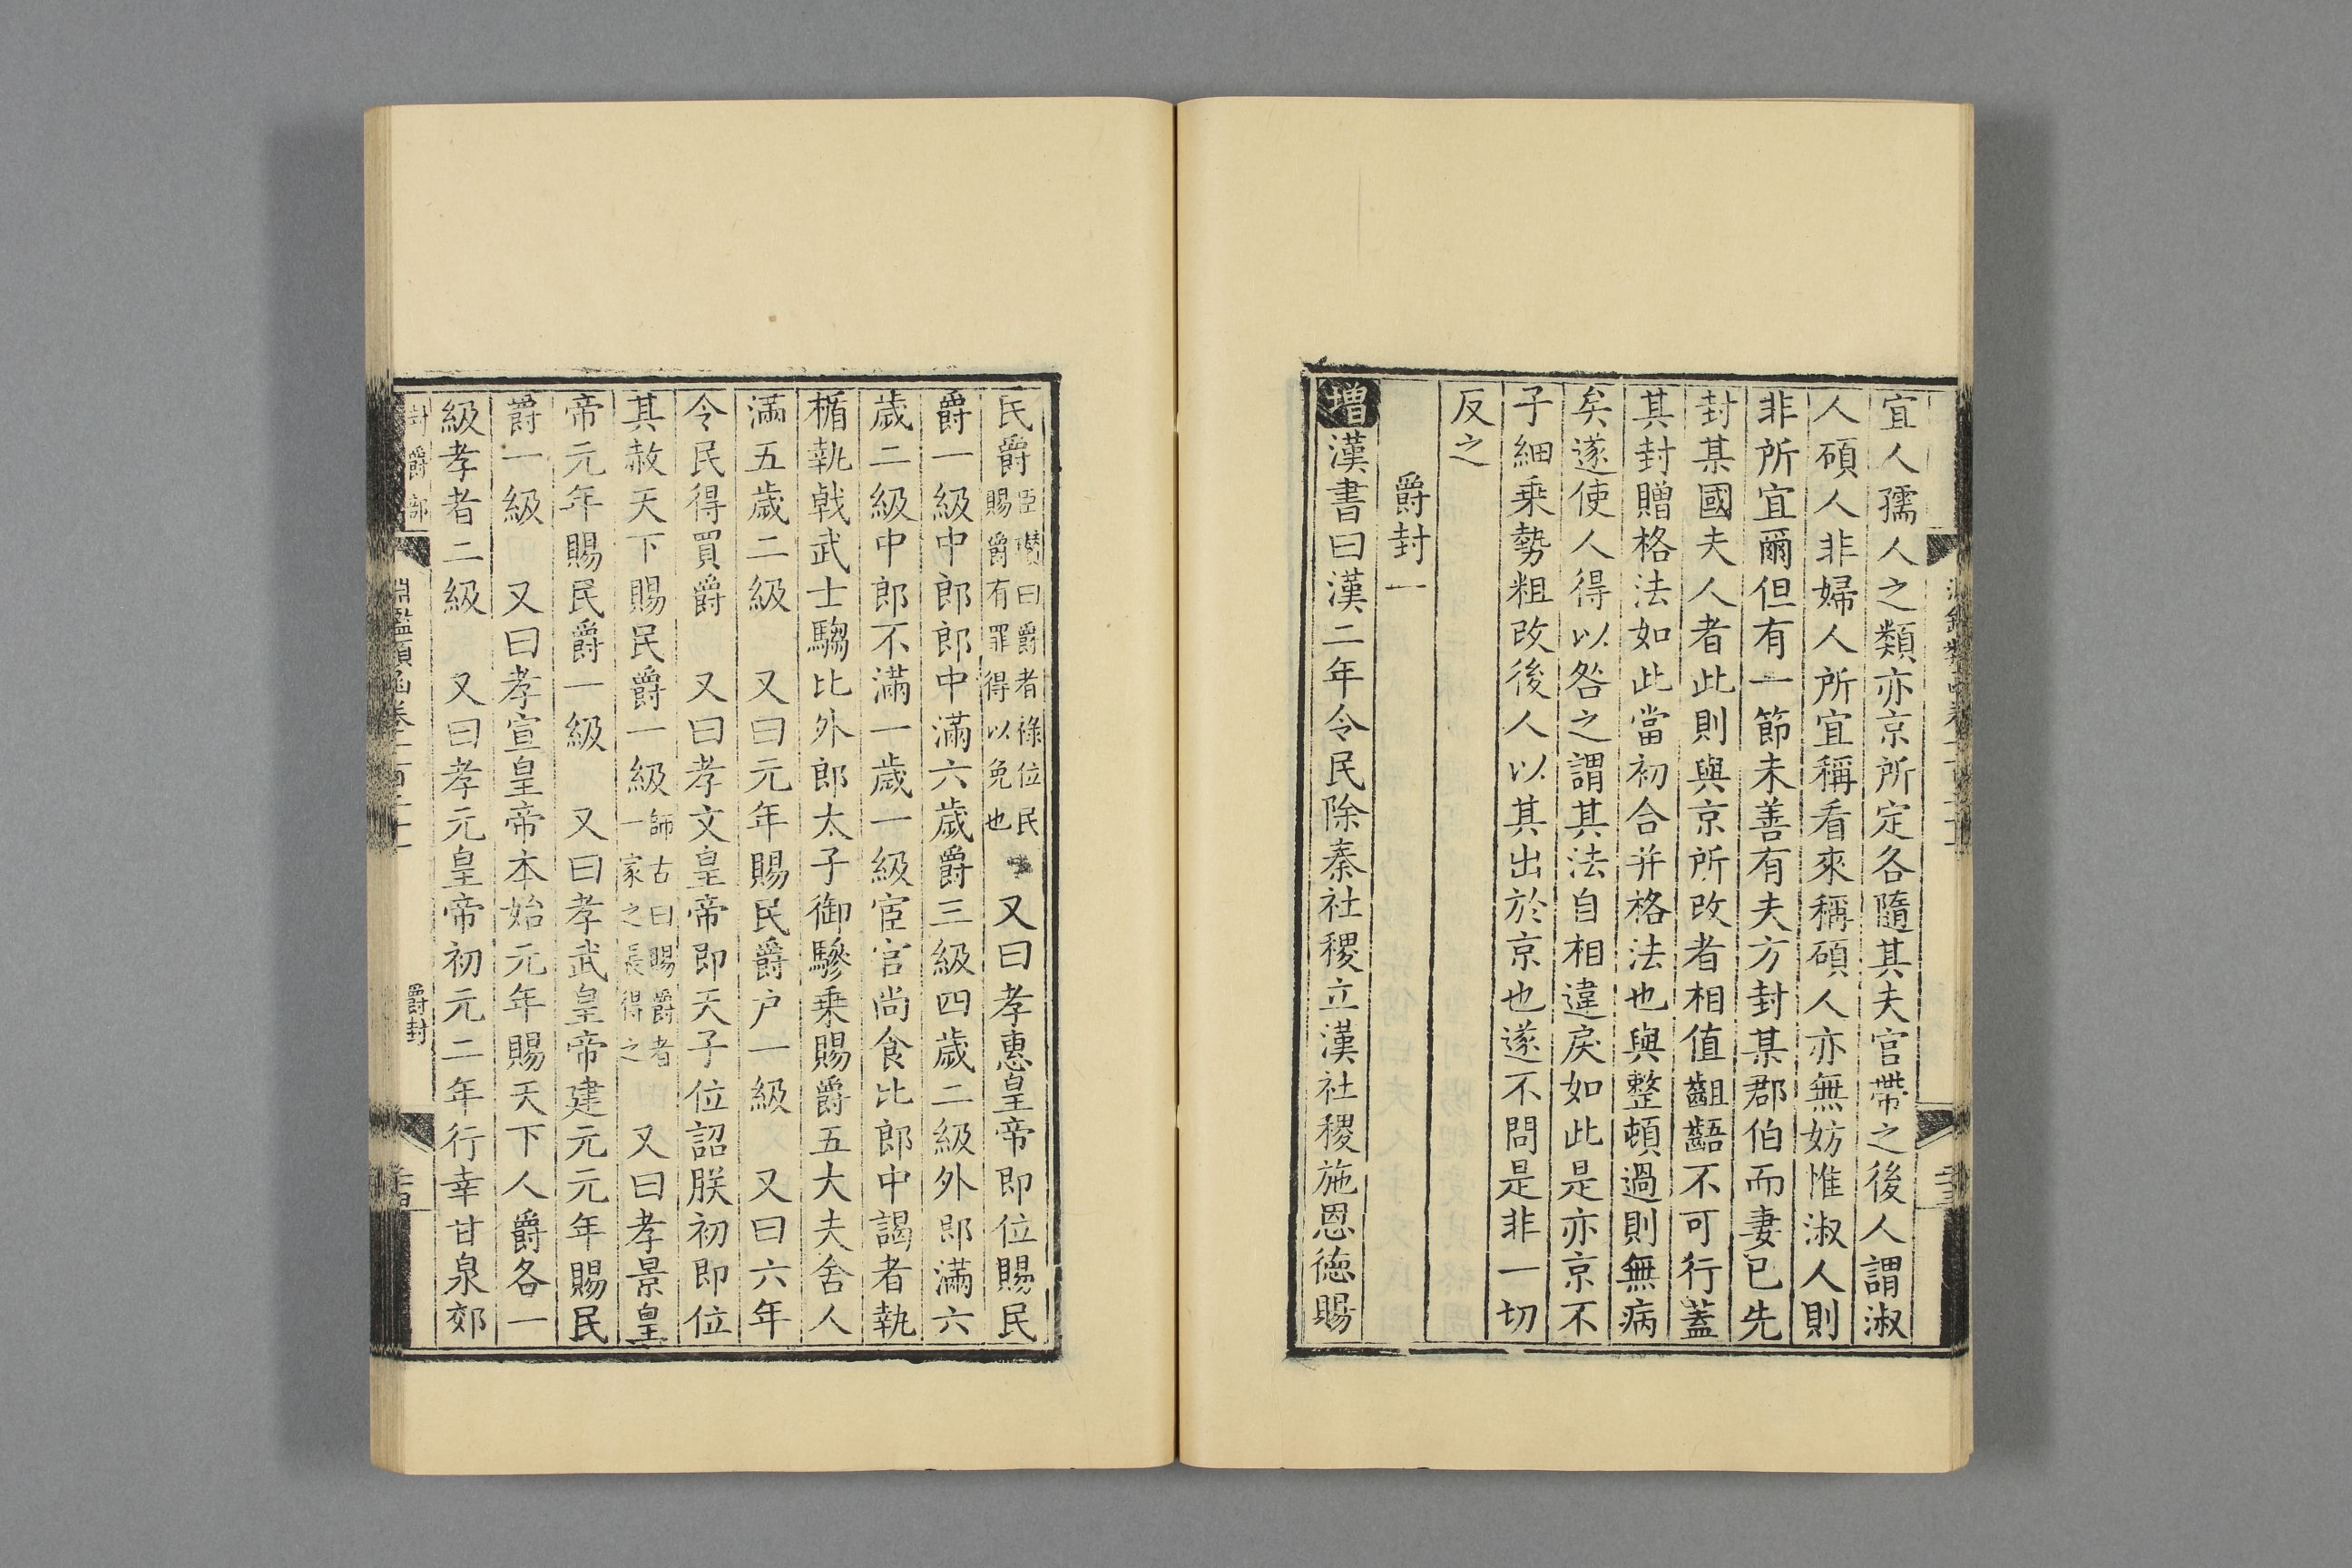 宜人孺人之類亦京所定各隨其夫官帶之後人謂淑
人碩人非婦人所宜稱看來稱碩人亦無妨惟淑人則
非所宜爾但有一節未善有夫方封某郡伯而妻已先
封某國夫人者此則與京所改者相值齟齬不可行蓋
其封贈格法如此當初合并格法也與整頓過則無病
矣遂使人得以咎之謂其法自相違戾如此是亦京不
子細乘勢粗改後人以其出於京也遂不問是非一切
反之
爵封一
增漢書曰漢二年令民除秦社稷立漢社稷施恩德賜
民爵臣瓚曰爵者祿位民賜爵有罪得以免也 又曰孝惠皇帝即位賜民
爵一級中郎郎中滿六歲爵三級四歲二級外郎滿六
歲二級中郎不滿一歲一級宦官尚食比郎中謁者執
楯執戟武士騶比外郎太子御驂乘賜爵五大夫舍人
滿五歲二級 又曰元年賜民爵户一級 又曰六年
令民得買爵 又曰孝文皇帝即天子位詔朕初即位
其赦天下賜民爵一級師古曰賜爵者一家之長得之 又曰孝景皇
帝元年賜民爵一級 又曰孝武皇帝建元元年賜民
爵一級 又曰孝宣皇帝本始元年賜天下人爵各一
級孝者二級 又曰孝元皇帝初元二年行幸甘泉郊
封爵部
爵封